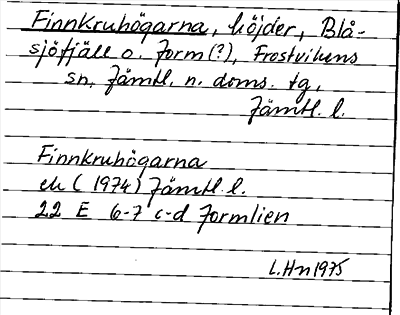 Finnkruhögarna, höjder, Blå-
sjöfjäll o. Jorm(?), Frostvikens
sn, Jämtl. n. doms. tg,
Jämtl. l.
Finnkruhögarna
ek (1974) Jämtl. l.
22 E 6-7 c-d Jormlien
L.Hn 1975